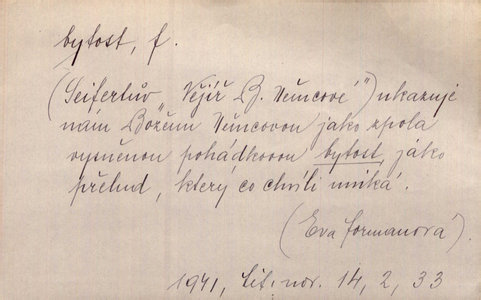 bytost, f.
(Seifertův „Vějíř B. Němcové") ukazuje
nám Boženu Němcovou jako zpola
vysněnou pohádkovou bytost, jako
přelud, který co chvíli uniká.
(Eva Formanová).
1941, Lit. nov. 14, 2, 33